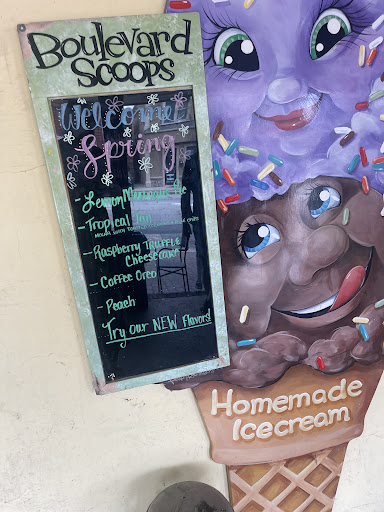 Boulevard
Scoops
Welcome
Spring
- Lemon Meringue Pie
- Tropical Tan
- Raspberry Truffle
Cheesecake
- Coffee Oreo
- Peach
Try our NEW Flavors!
Homemade
Icecream